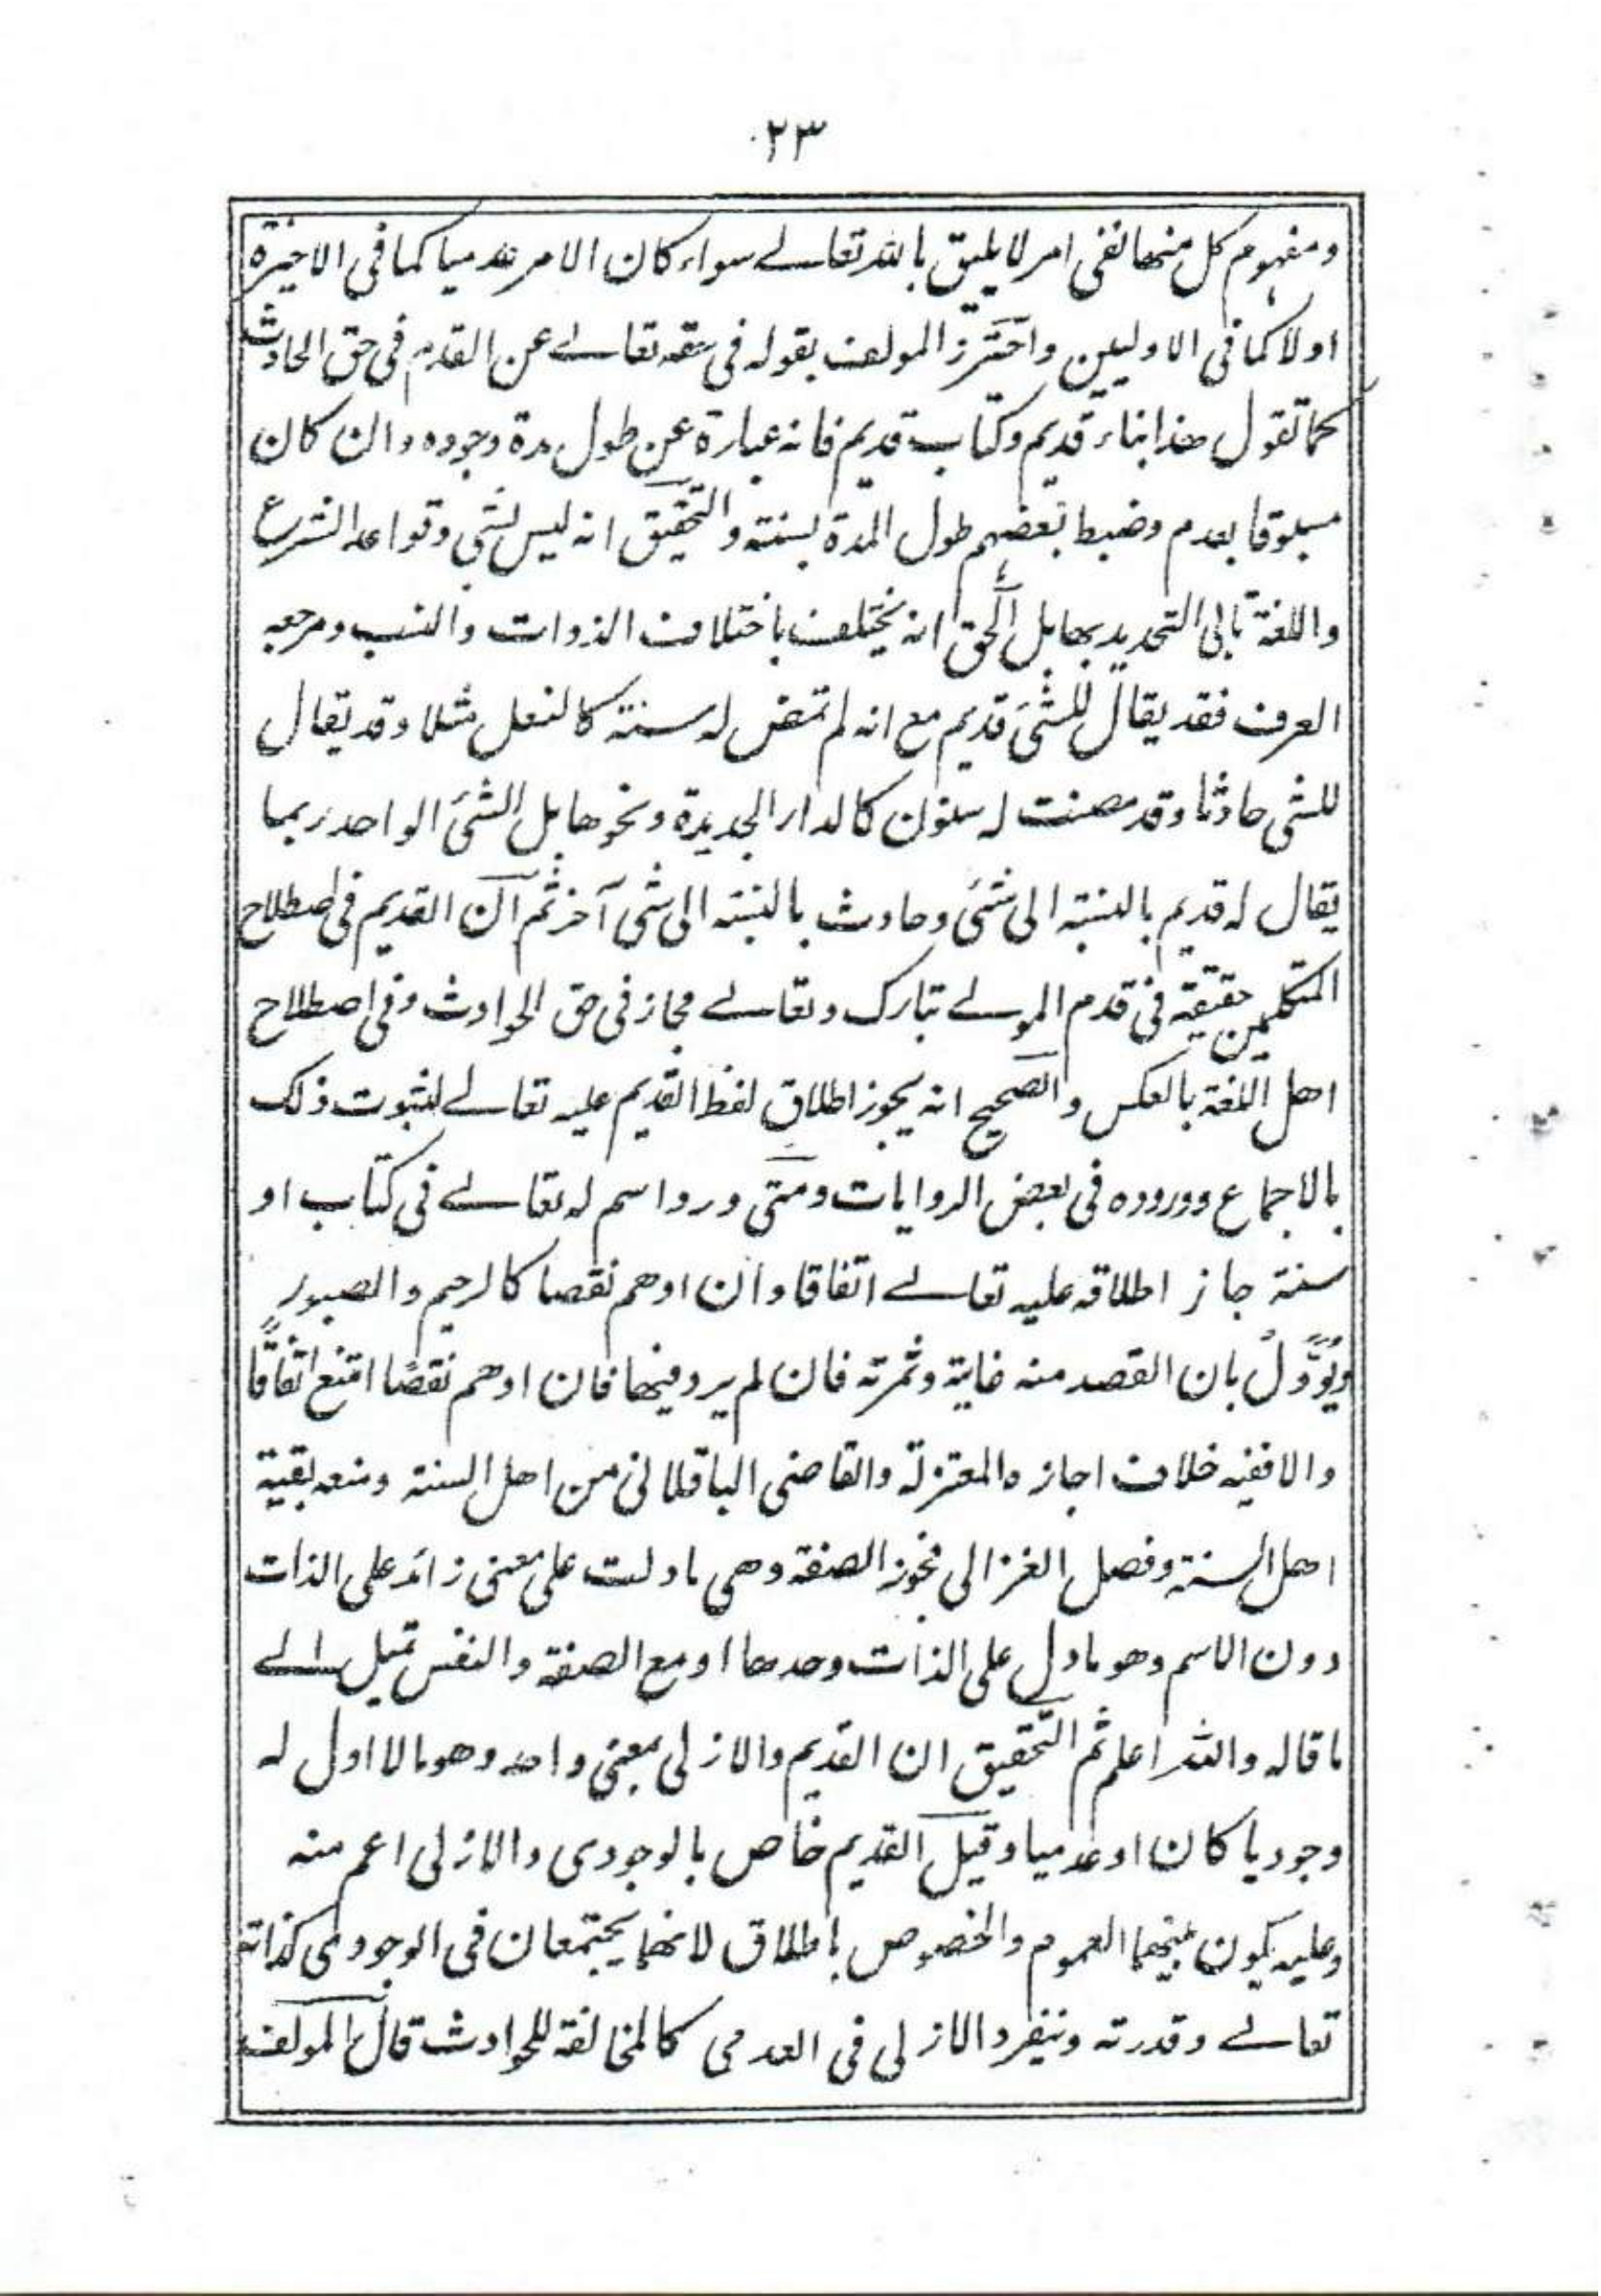 ٢٣
ومفهوم كل منها نفى امر لا يليق بالله تعالے سواء كان الامر عدميا كما فى الاخيرة
او لا كما فى الاوليين واحترز المولف بقوله فى حقه تعالے عن القدم فى حق الحادث
كما تقول هذا بناء قديم وكتاب قديم فانه عبارة عن طول مدة وجوده وان كان
مسبوقا بعدم وضبط بعضهم طول المدة بسنة والتحقيق انه ليس بشى وقواعد الشرع
واللغة تابى التحديد بها بل الحق انه يختلف باختلاف الذوات والنسب ومرجعه
العرف فقد يقال للشئ قديم مع انه لم تمض له سنة كالنعل مثلا وقد يقال
للشى حادثا وقد مضت له سنون كالدار الجديدة ونحوها بل الشئ الواحد ربما
يقال له قديم بالنسبة الى شئ وحادث بالنسبة الى شى آخر ثم ان القديم فى اصطلاح
المتكلمين حقيقة فى قدم المولے تبارك وتعالے مجاز فى حق الحوادث وفى اصطلاح
اهل اللغة بالعكس والصحيح انه يجوز اطلاق لفظ القديم عليه تعالے لثبوت ذلك
بالاجماع ووروده فى بعض الروايات ومتى ورد اسم له تعالے فى كتاب او
سنة جاز اطلاقه عليه تعالے اتفاقا وان اوهم نقصا كالرحيم والصبور
ويُؤَوَّلُ بان القصد منه غاية وثمرته فان لم يرد فيها فان اوهم نقصًا امتنع اتفاقًا
والا ففيه خلاف اجازه المعتزلة والقاضى الباقلانى من اهل السنة ومنعه بقية
اهل السنة وفصل الغزالى فجوز الصفة وهى ما دلت على معنى زائد على الذات
دون الاسم وهو ما دل على الذات وحدها او مع الصفة والنفس تميل الے
ما قاله والله اعلم ثم التحقيق ان القديم والازلى بمعنى واحد وهو ما لا اول له
وجوديا كان او عدميا وقيل القديم خاص بالوجودى والازلى اعم منه
وعليه يكون بينهما العموم والخصوص باطلاق لانهما يجتمعان فى الوجودى كذاته
تعالے وقدرته وينفرد الازلى فى العدمى كالمخالفة للحوادث قال المولف